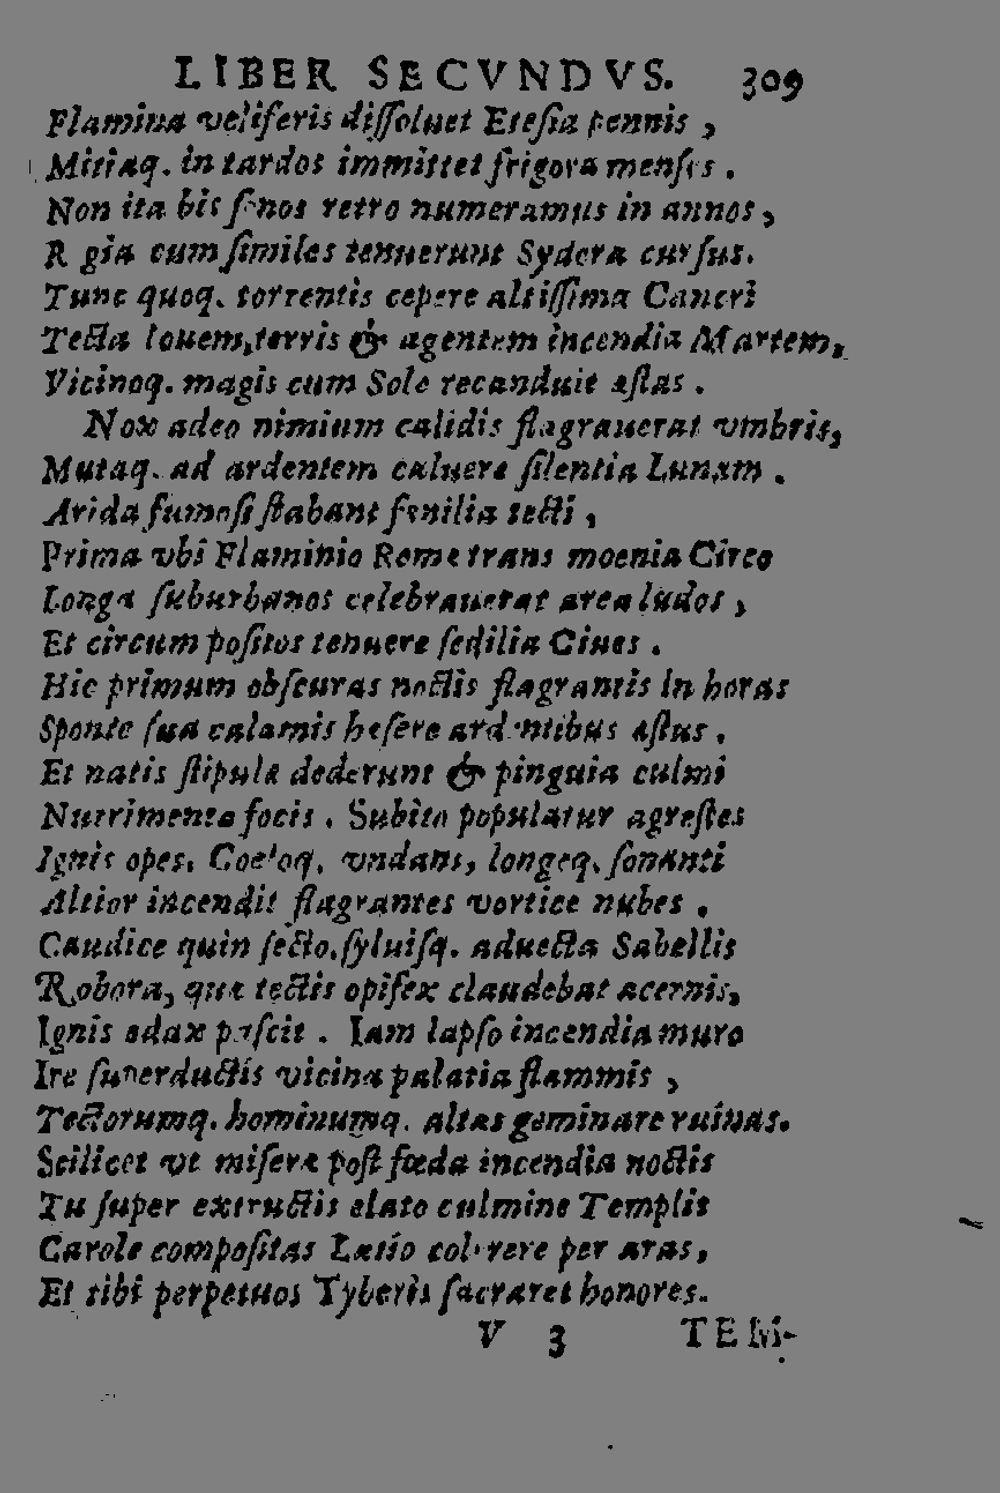 LIBER SECVNDVS. 309
Flamina veliferis diſſoluet Eteſia pennis,
Mitiaq. in tardos immittet frigora menſes.
Non ita bis ſenos retro numeramus in annos,
R gia cum ſimiles tenuerunt Sydera curſus.
Tunc quoq. torrentis cepere altiſſima Cancri
Tecta Iouem, terris & agentem incendia Martem,
Vicinoq. magis cum Sole recanduit æſtas.
Nox adeo nimium calidis flagrauerat vmbris,
Mutaq. ad ardentem caluere ſilentia Lunam.
Arida fumoſi ſtabant fenilia tecti,
Prima vbi Flaminio Rome trans moenia Circo
Longa ſuburbanos celebrauerat area ludos,
Et circum poſitos tenuere ſedilia Ciues.
Hic primum obſcuras noctis flagrantis in horas
Sponte ſua calamis heſere ardentibus æſtus.
Et natis ſtipulæ dederunt & pinguia culmi
Nutrimenta focis. Subito populatur agreſtes
Ignis opes, Coeloq. vndans, longeq. ſonanti
Altior incendit flagrantes vortice nubes.
Caudice quin ſecto, ſyluiſq. aduecta Sabellis
Robora, quæ tectis opifex claudebat acernis,
Ignis edax paſcit. Iam lapſo incendia muro
Ire ſuperductis vicina palatia flammis,
Tectorumq. hominumq. altas geminare ruinas.
Scilicet vt miſeræ poſt fœda incendia noctis
Tu ſuper extructis elato culmine Templis
Carole compoſitas Latio colerere per aras,
Et tibi perpetuos Tyberis ſacraret honores.
V 3 TEM-